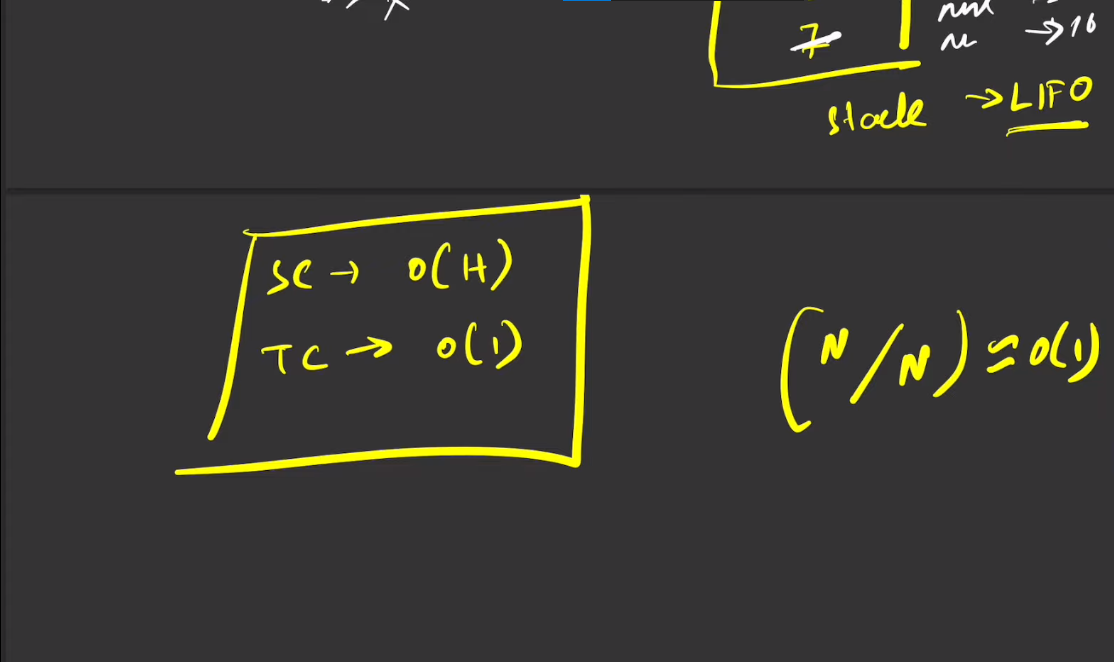 7
→16
stack →LIFO
SC → O(H)
TC → O(1)
(N/N) ≈ O(1)